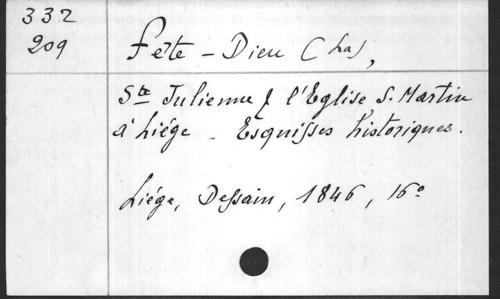 332
209
Fête - Dieu (La),
Ste Julienne & l'Eglise S. Martin
à Liége - Esquisses historiques.
Liége, Dessain, 1846, 16°